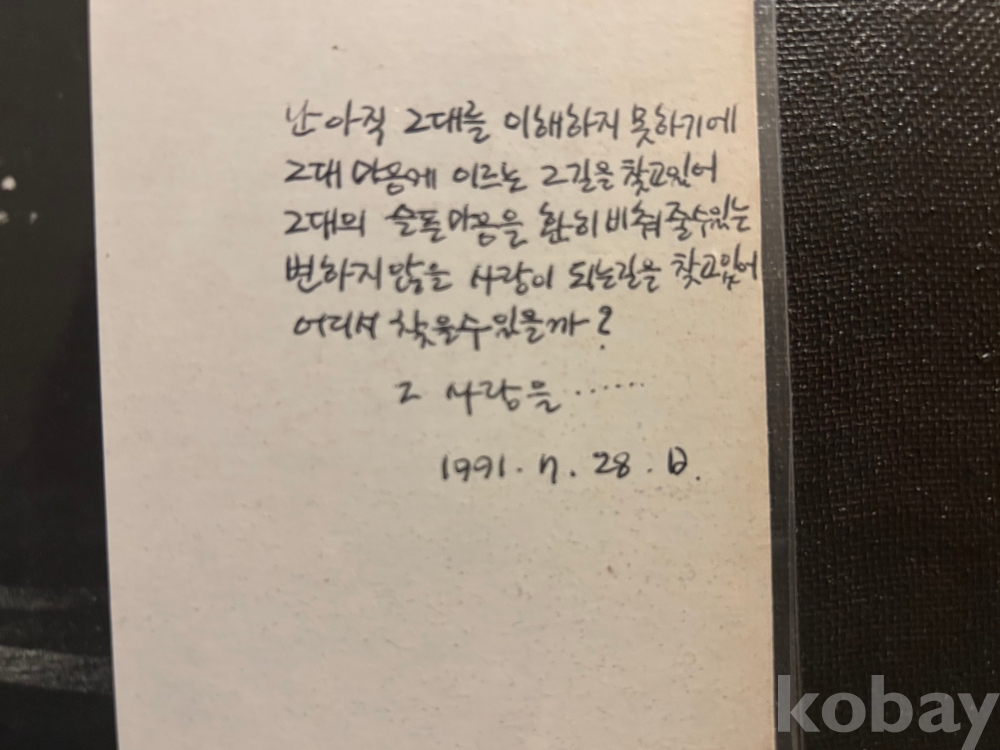 난 아직 그대를 이해하지 못하기에
그대 마음에 이르는 그길을 찾고있어
그대의 슬픈마음을 환히 비춰 줄수있는
변하지 않을 사랑이 되는길을 찾고있어
어디서 찾을수 있을까?
그 사랑을 ......
1991. 7. 28. 日.
kobay